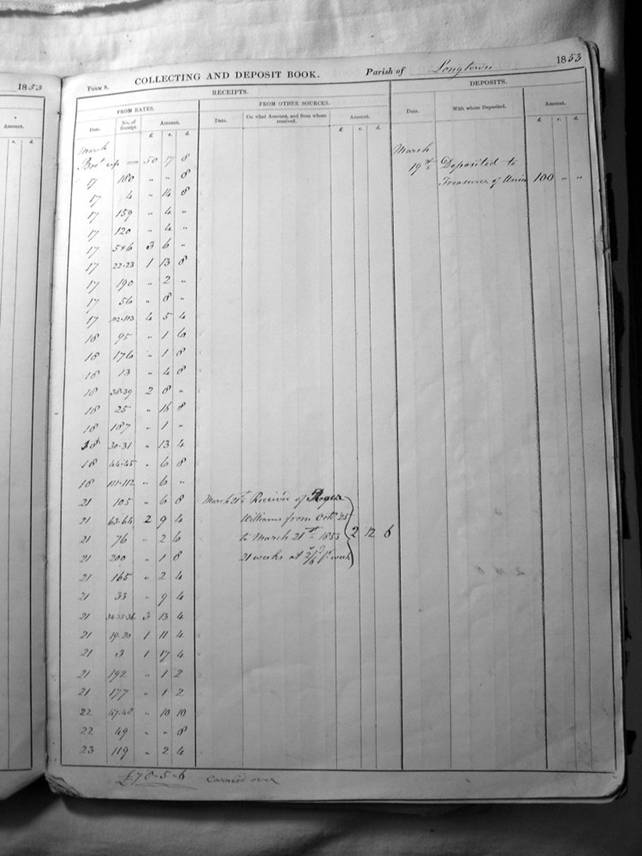 1853
Amount.
s. d.
FORM 8. COLLECTING AND DEPOSIT BOOK. Parish of Longtown 1853
RECEIPTS. DEPOSITS.
FROM RATES. FROM OTHER SOURCES.
Date. No. of Receipt Amount. Date. On what Account, and from whom received. Amount. Date. With whom Deposited. Amount.
£ s. d. £ s. d. £ s. d.
March
March
Brot up 50 17 8
19th Deposited to
17 180 " " 8
Treasurer of Union 100 " "
17 4 " 14 8
17 159 " 4 "
17 120 " 4 "
17 5&6 3 6 "
17 22-23 1 13 8
17 190 " 2 "
17 56 " 8 "
17 112-113 4 5 4
18 95 " 1 6
18 176 " 1 8
18 13 " 4 8
18 38-39 2 8 "
18 25 " 16 8
18 187 " 1 "
18 30-31 " 13 4
18 44-45 " 6 8
18 111-112 " 6 "
21 105 " 6 8 March 21st Receive of Roger
21 63-64 2 9 4 Williams from Octr 25
21 76 " 2 6 to March 21st 1853 2 12 6
21 200 " 1 8 21 weeks at 2/6 pr week
21 165 " 2 4
21 33 " 9 4
21 34-35-36 3 13 4
21 19-20 1 11 4
21 3 1 17 4
21 192 " 1 2
21 177 " 1 2
22 47-48 " 10 10
22 49 " " 8
23 119 " 2 4
£70-5-6 Carried over